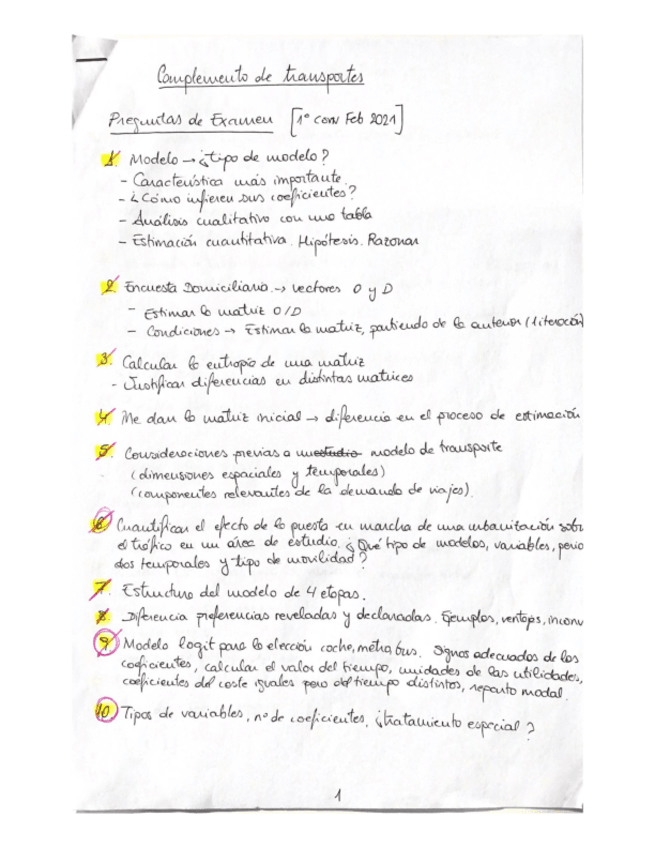 Complemento de transportes
Preguntas de Examen [1º conv Feb 2021]
1. Modelo → ¿tipo de modelo?
- Característica más importante.
- ¿Cómo infieren sus coeficientes?
- Análisis cualitativo con una tabla
- Estimación cuantitativa. Hipótesis. Razonar
2. Encuesta Domiciliaria → vectores O y D
- Estimar la matriz O/D
- Condiciones → Estimar la matriz, partiendo de la anterior (1 iteración)
3. Calcular la entropía de una matriz
- Justificar diferencias en distintas matrices
4. Me dan la matriz inicial → diferencia en el proceso de estimación
5. Consideraciones previas a un estudio modelo de transporte
(dimensiones espaciales y temporales)
(componentes relevantes de la demanda de viajes).
6. Cuantificar el efecto de la puesta en marcha de una urbanización sobr
el tráfico en un área de estudio. ¿Qué tipo de modelos, variables, perio
dos temporales y tipo de movilidad?
7. Estructura del modelo de 4 etapas.
8. Diferencia preferencias reveladas y declaradas. Ejemplos, ventajas, inconv
9. Modelo logit para la elección coche, metro, bus. Signos adecuados de los
coeficientes, calcular el valor del tiempo, unidades de las utilidades,
coeficientes del coste iguales pero del tiempo distintos, reparto modal.
10. Tipos de variables, nº de coeficientes, ¿tratamiento especial?
1